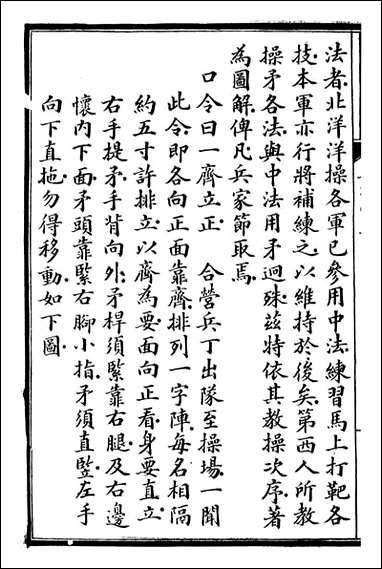 法者北洋洋操各軍已參用中法練習馬上打靶各
技本軍亦行將補練之以維持於後矣第西人所教
操矛各法與中法用矛迥殊茲特依其教操次序著
為圖解俾凡兵家節取焉
口令曰一齊立正 合營兵丁出隊至操場一聞
此令即各向正面靠齊排列一字陣每名相隔
約五寸許排立以齊為要面向正看身要直立
右手提矛手背向外矛桿須緊靠右腿及右邊
懷內下面矛頭靠緊右腳小指矛須直豎左手
向下直拖勿得移動如下圖